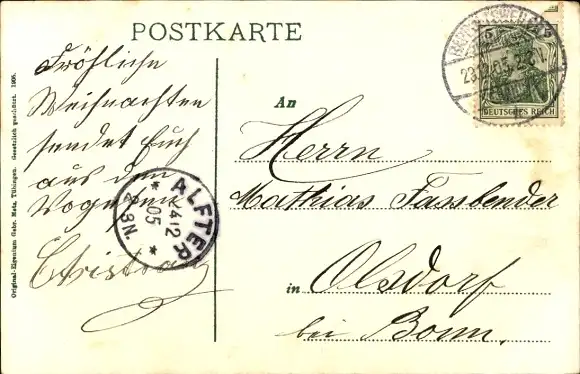 POSTKARTE
Fröhliche
Weihnachten
sendet Euch
aus den
Vogesen
Christian
An
Herrn
Mathias Fassbender
in Olsdorf
bei Bonn.
DEUTSCHES REICH
23.12.05
ALFTER
* 24.12 *
05
2-3N.
Original-Eigentum Gebr. Metz, Tübingen. Gesetzlich geschützt. 1905.